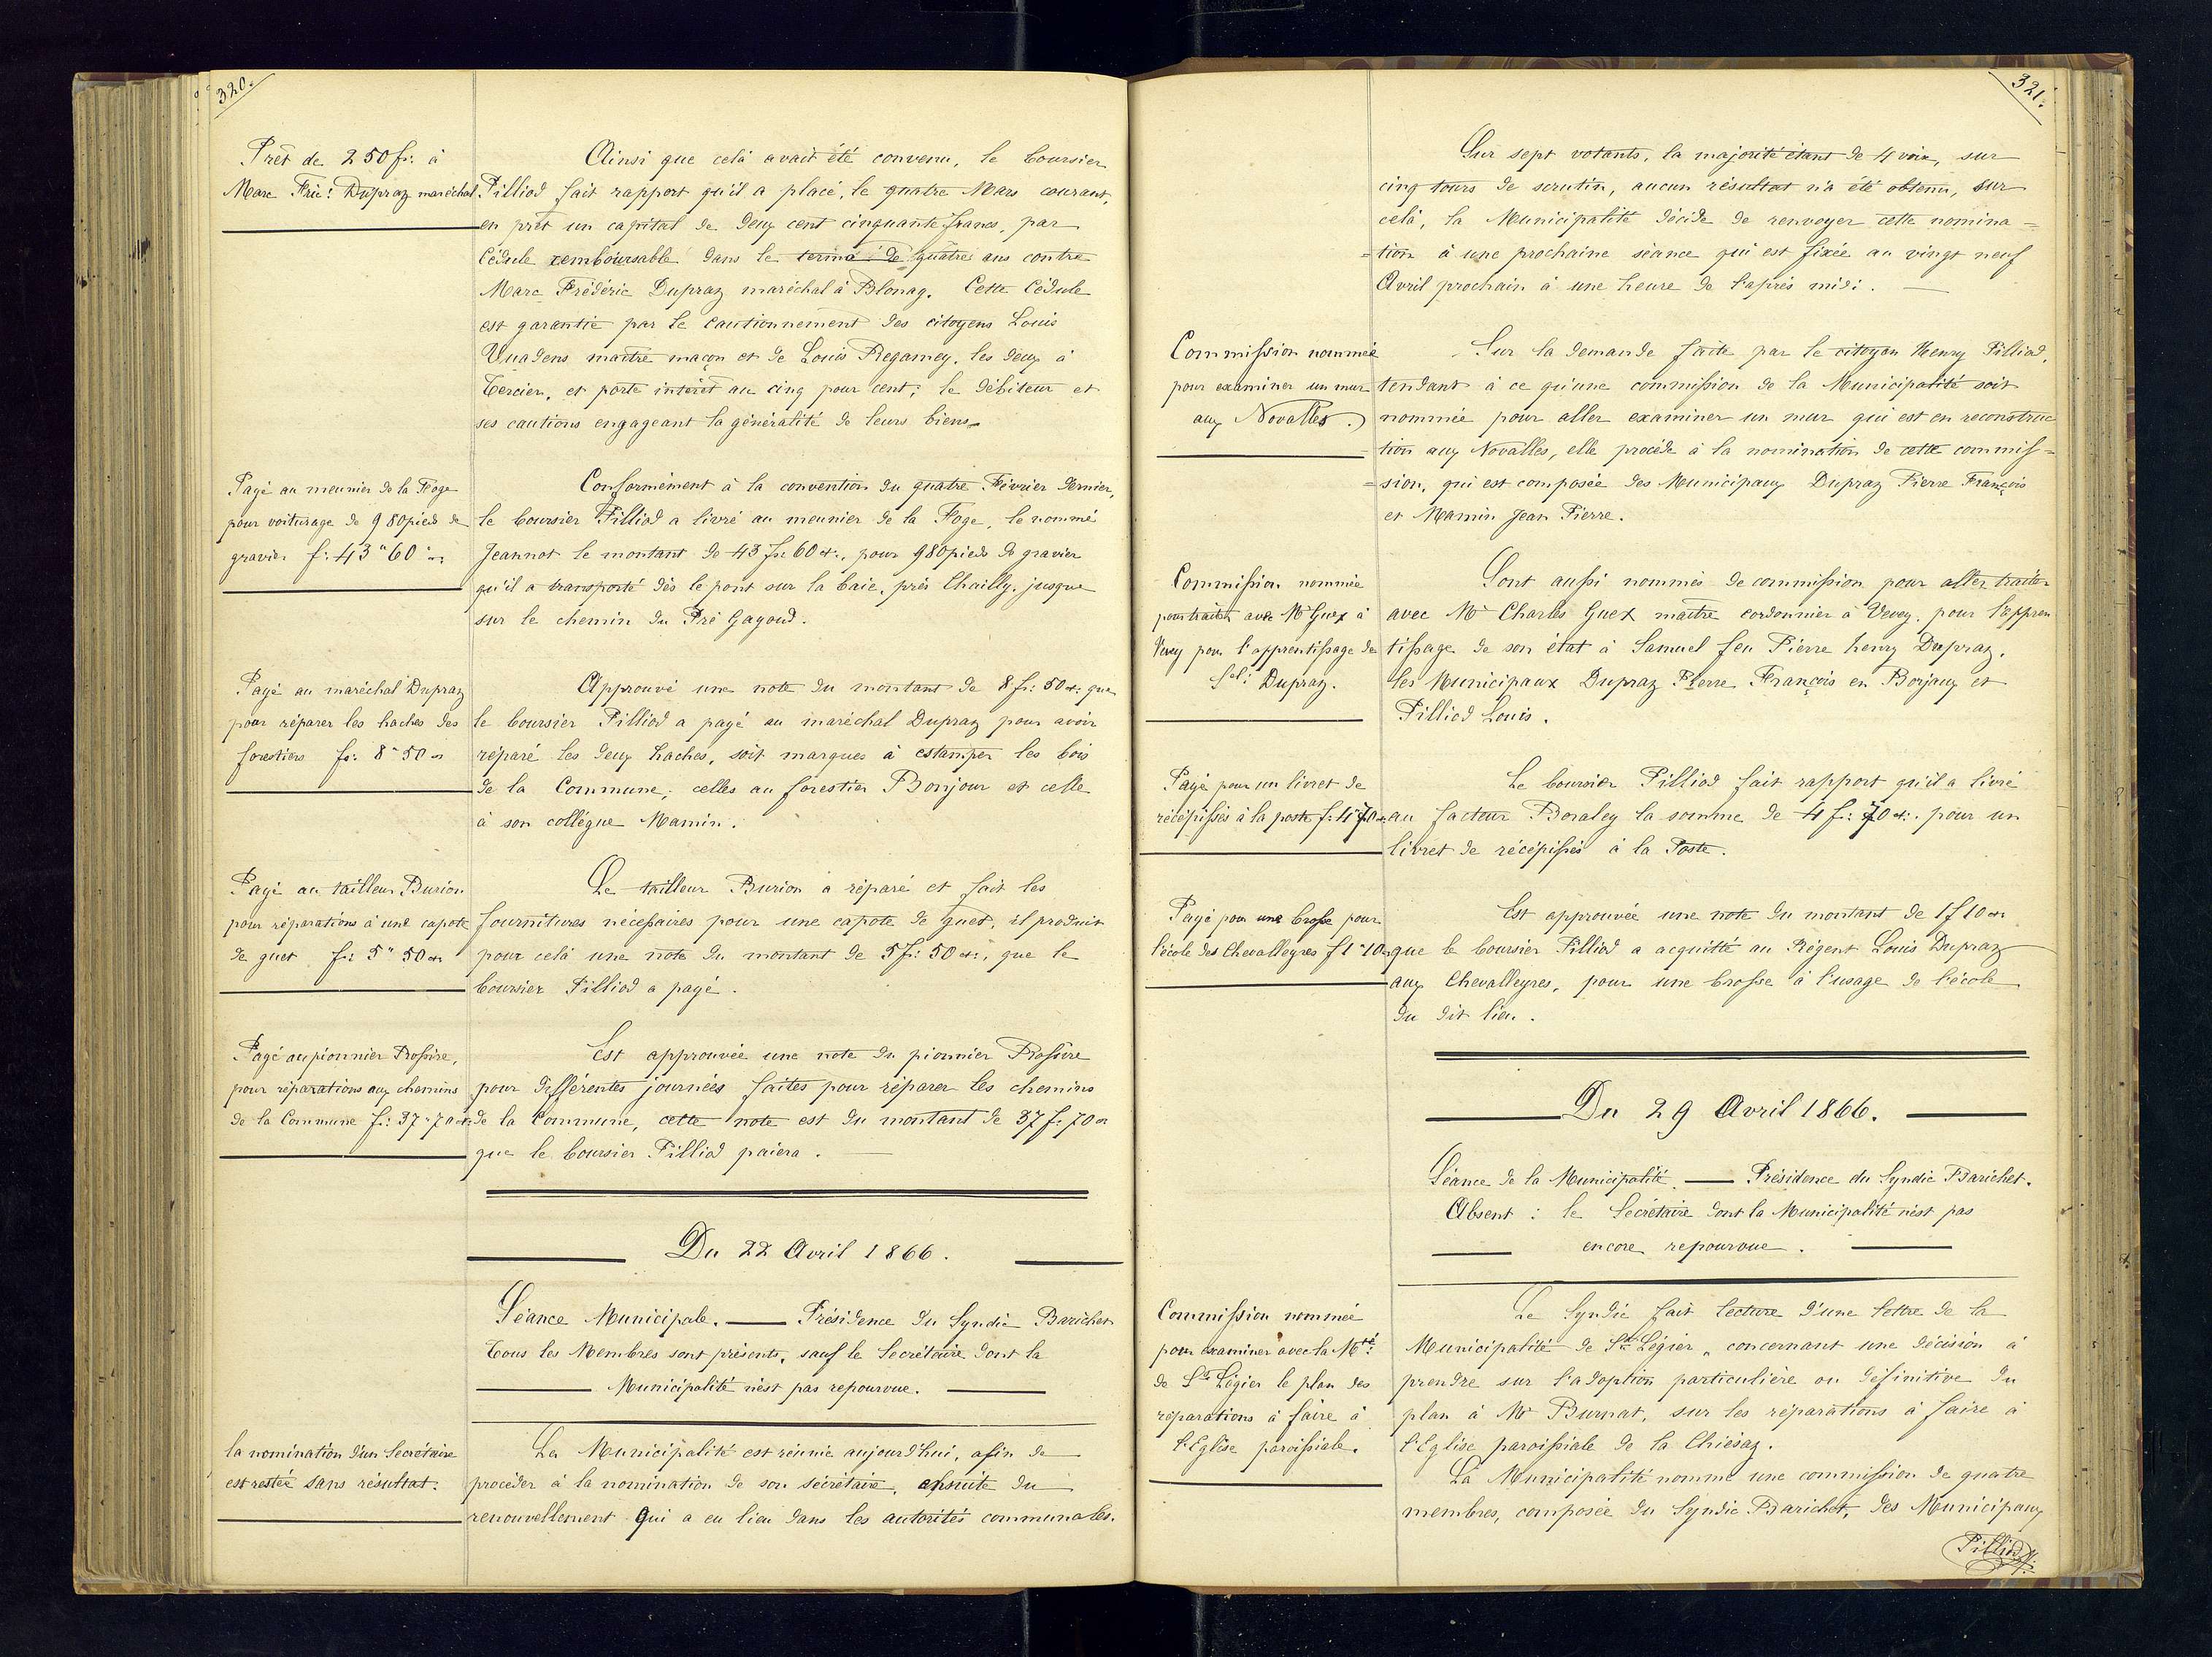 320.
Prêt de 250 fr: à
Marc Fric: Dupraz maréchal
Ainsi que celà avait été convenu, le boursier
Pilliod fait rapport qu'il a placé, le quatre Mars courant,
en prêt un capital de deux cent cinquante francs, par
Cédule remboursable dans le terme de quatre ans contre
Marc Frédéric Dupraz maréchal à Blonay. Cette Cédule
est garantie par le cautionnement des citoyens Louis
Vuadens maître maçon et de Louis Regamey, les deux à
Tercier, et porte intérêt au cinq pour cent; le débiteur et
ses cautions engageant la généralité de leurs biens.
Payé au meunier de la Foge
pour voiturage de 980 pieds de
gravier f: 43"60 ct:
Conformément à la convention du quatre Février dernier,
le boursier Pilliod a livré au meunier de la Foge, le nommé
Jeannot le montant de 43 fr: 60 ct:, pour 980 pieds de gravier
qu'il a transporté dès le pont sur la baie, près Chailly, jusque
sur le chemin du Pré Gagoud.
Payé au maréchal Dupraz
pour réparer les haches des
forestiers fr: 8"50 ct
Approuvé une note du montant de 8 fr: 50 ct: que
le boursier Pilliod a payé au maréchal Dupraz pour avoir
réparé les deux haches, soit marques à estamper les bois
de la Commune; celles au forestier Bonjour et celle
à son collègue Mamin.
Payé au tailleur Burion
pour réparations à une capote
de guet fr: 5"50 ct
Le tailleur Burion a réparé et fait les
fournitures nécessaires pour une capote de guet, il produit
pour celà une note du montant de 5 fr: 50 ct:, que le
boursier Pilliod a payé.
Payé au pionnier Rossire,
pour réparations aux chemins
de la Commune f: 37"70 ct
Est approuvée une note du pionnier Rossire
pour différentes journées faites pour réparer les chemins
de la Commune, cette note est du montant de 37 f: 70 ct
que le boursier Pilliod paiera.
Du 22 Avril 1866.
Séance Municipale. Présidence du Syndic Barichet
Tous les Membres sont présents, sauf le Secrétaire dont la
Municipalité n'est pas repourvue.
la nomination d'un Secrétaire
est restée sans résultat.
La Municipalité est réunie aujourd'hui, afin de
procéder à la nomination de son sécrétaire, ensuite du
renouvellement qui a eu lieu dans les autorités communales.
321.
Sur sept votants, la majorité étant de 4 voix, sur
cinq tours de scrutin, aucun résultat n'a été obtenu, sur
celà, la Municipalité décide de renvoyer cette nomina=
=tion à une prochaine séance qui est fixée au vingt neuf
Avril prochain à une heure de l'après midi.
Commission nommée
pour examiner un mur
aux Novalles.
Sur la demande faite par le citoyen Henry Pilliod,
tendant à ce qu'une commission de la Municipalité soit
nommée pour aller examiner un mur qui est en reconstruc
=tion aux Novalles, elle procède à la nomination de cette commis=
=sion, qui est composée des Municipaux Dupraz Pierre François
et Mamin Jean Pierre.
Commission nommée
pour traiter avec Mr Guex à
Vevey pour l'apprentissage de
Sel: Dupraz.
Sont aussi nommés de commission pour aller traiter
avec Mr Charles Guex maître cordonnier à Vevey, pour l'appren
tissage de son état à Samuel feu Pierre henry Dupraz,
les Municipaux Dupraz Pierre François en Borjaux et
Pilliod Louis.
Payé pour un livret de
récépissés à la poste f: 4"70 ct
Le boursier Pilliod fait rapport qu'il a livré
au facteur Bonaley la somme de 4 f: 70 ct: pour un
livret de récépissés à la Poste.
Payé pour une brosse pour
l'école des Chevalleyres f 1"10 ct
Est approuvée une note du montant de 1 f 10 ct
que le boursier Pilliod a acquitté au Régent Louis Dupraz
aux Chevalleyres, pour une brosse à l'usage de l'école
du dit lieu.
Du 29 Avril 1866.
Séance de la Municipalité. Présidence du Syndic Barichet.
Absent : le Secrétaire dont la Municipalité n'est pas
encore repourvue.
Commission nommée
pour examiner avec la Mté:
de St Légier le plan des
réparations à faire à
l'Eglise paroissiale.
Le Syndic fait lecture d'une lettre de la
Municipalité de St Légier, concernant une décision à
prendre sur l'adoption particulière ou définitive du
plan à Mr Burnat, sur les réparations à faire à
l'Eglise paroissiale de la Chiésaz.
La Municipalité nomme une commission de quatre
membres, composée du Syndic Barichet, des Municipaux
Pilliod